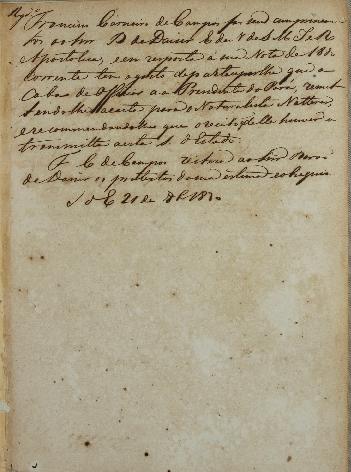 Francisco Carneiro de Campos faz seus cumprimen-
tos ao Snr B. de Daiser E. de S. M. I. R.
Apostolica, e em resposta á sua Nota de 18 do
corrente tem o gosto de participar lhe que a-
caba de Officiar ao Presidente do Pará, remet-
tendo lhe a carta para o Naturalista Natterer,
e recommendando lhe que o recibo delle haja de
transmittir a esta S. d'Estado.
F. C. de Campos reitera ao Snr Barão
de Daiser os protestos da sua estima e obsequio
S d E 21 de 1830